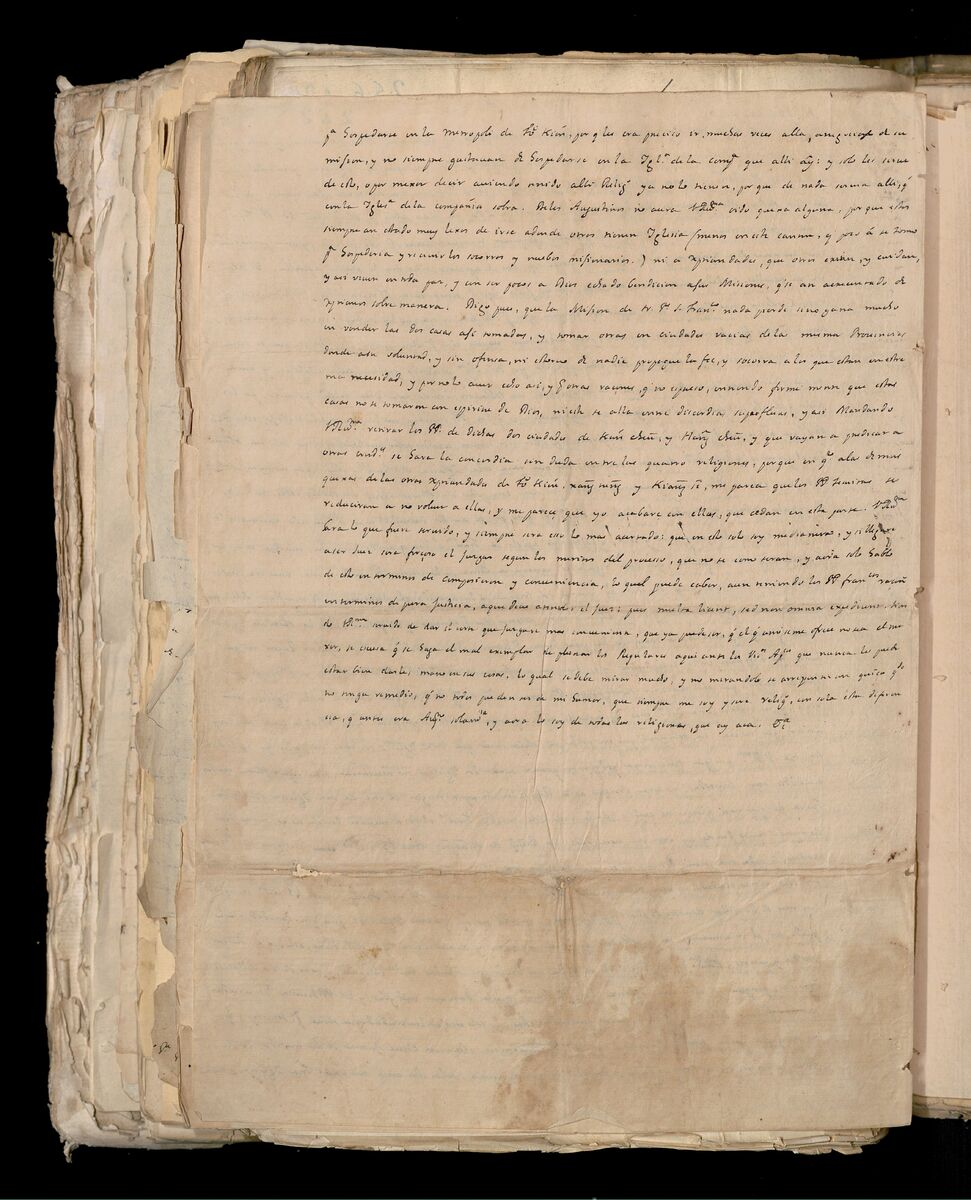 pª hospedarse en la metropoli de fŏ kién, por q̃ les era preciso ir muchas veces alla, a negocios de su
mission, y no siempre gustavan de hospedarse en la Iglª de la compª que alli ay: y solo les sirve
de esto, o por mexor decir aviendo tenido alli Religº ya no le tienen, por que de nada servia alli, q̃
con la Iglesª de la compañia sobra. De los Augustinos no aura VRmª oido quexa alguna, por que estos
siempre an estado muy lexos de irse adonde otros tienen Iglesia (menos en este canton, y pero á se tomo
pª hospederia y recivir los socorros y nuebos missionarios.) ni a xpriandades, que otros exiten, y cuidan,
y asi viven en toda paz, y con ser pocos a Dios echado bendicion a sus Misiones, q̃ se an acrecentado de
xprianos sobre manera. Digo pues, que la Mission de N. Pª S. Franº nada pierde sino gana mucho
en vender las dos casas asi tomadas, y tomar otras en ciudades vacias de la misma Provincia
donde a su voluntad, y sin ofensa, ni estorvo de nadie propague la fee, y socorra a los que estan en estre
ma necesidad, y por no lo aver echo asi, y por otras raçones, q̃ no expreso, entiendo firme mente que estas
casas no se tomaron con espiritu de Dios, ni este se alla entre discordias superfluas, y asi Mandando
VRmª retirar los PP. de Dichas dos ciudades de kán cheū, y Hang cheū, y que vayan a predicar a
otras ciudªˢ se hara la concordia sin duda entre las quatro religiones, porque en qᵗº a las demas
quexas de las otras xpriandades de fŏ kién, xang nang y Kiang sī, me pareçe que los PP. Jesuitas se
reduciran a no volver a ellas, y me pareçe que yo acabare con ellos, que cedan en esta parte. VRmª
hara lo que fuere servido, y siempre sera eso lo mas acertado: que en esto solo soy medianero, y si llegara
a ser Juez sera forçoso el juzgar segun los meritos del proceso, que no se como seran, y aora solo hablo
de esto en terminos de composicion y conveniencia, lo qual puede caber, aun teniendo los PP. franᶜᵒˢ raçon
en terminos de pura Justicia, a que deve atender el Juez: pues multa licent, sed non omnia expediunt.
de Rmª servido de dar el corte que juzgare mas conveniente, que ya puede ser, q̃ el q̃ aunsime ofrece no sea el me
xor, se escusa q̃ se haga el mal exemplar de pleitear los Regulares aqui ante los Viº Apº que nunca les puede
estar bien darles mano en sus cosas, lo qual se debe mirar mucho, y no mirandolo se arrepentiran quiça qᵈº
no tenga remedio, q̃ no todos pueden ser de mi humor, que siempre me soy y sere religº, con sola esta diferen
cia, q̃ antes era Augº solamᵗᵉ, y aora lo soy de todas las religiones, que ay aca. Vª